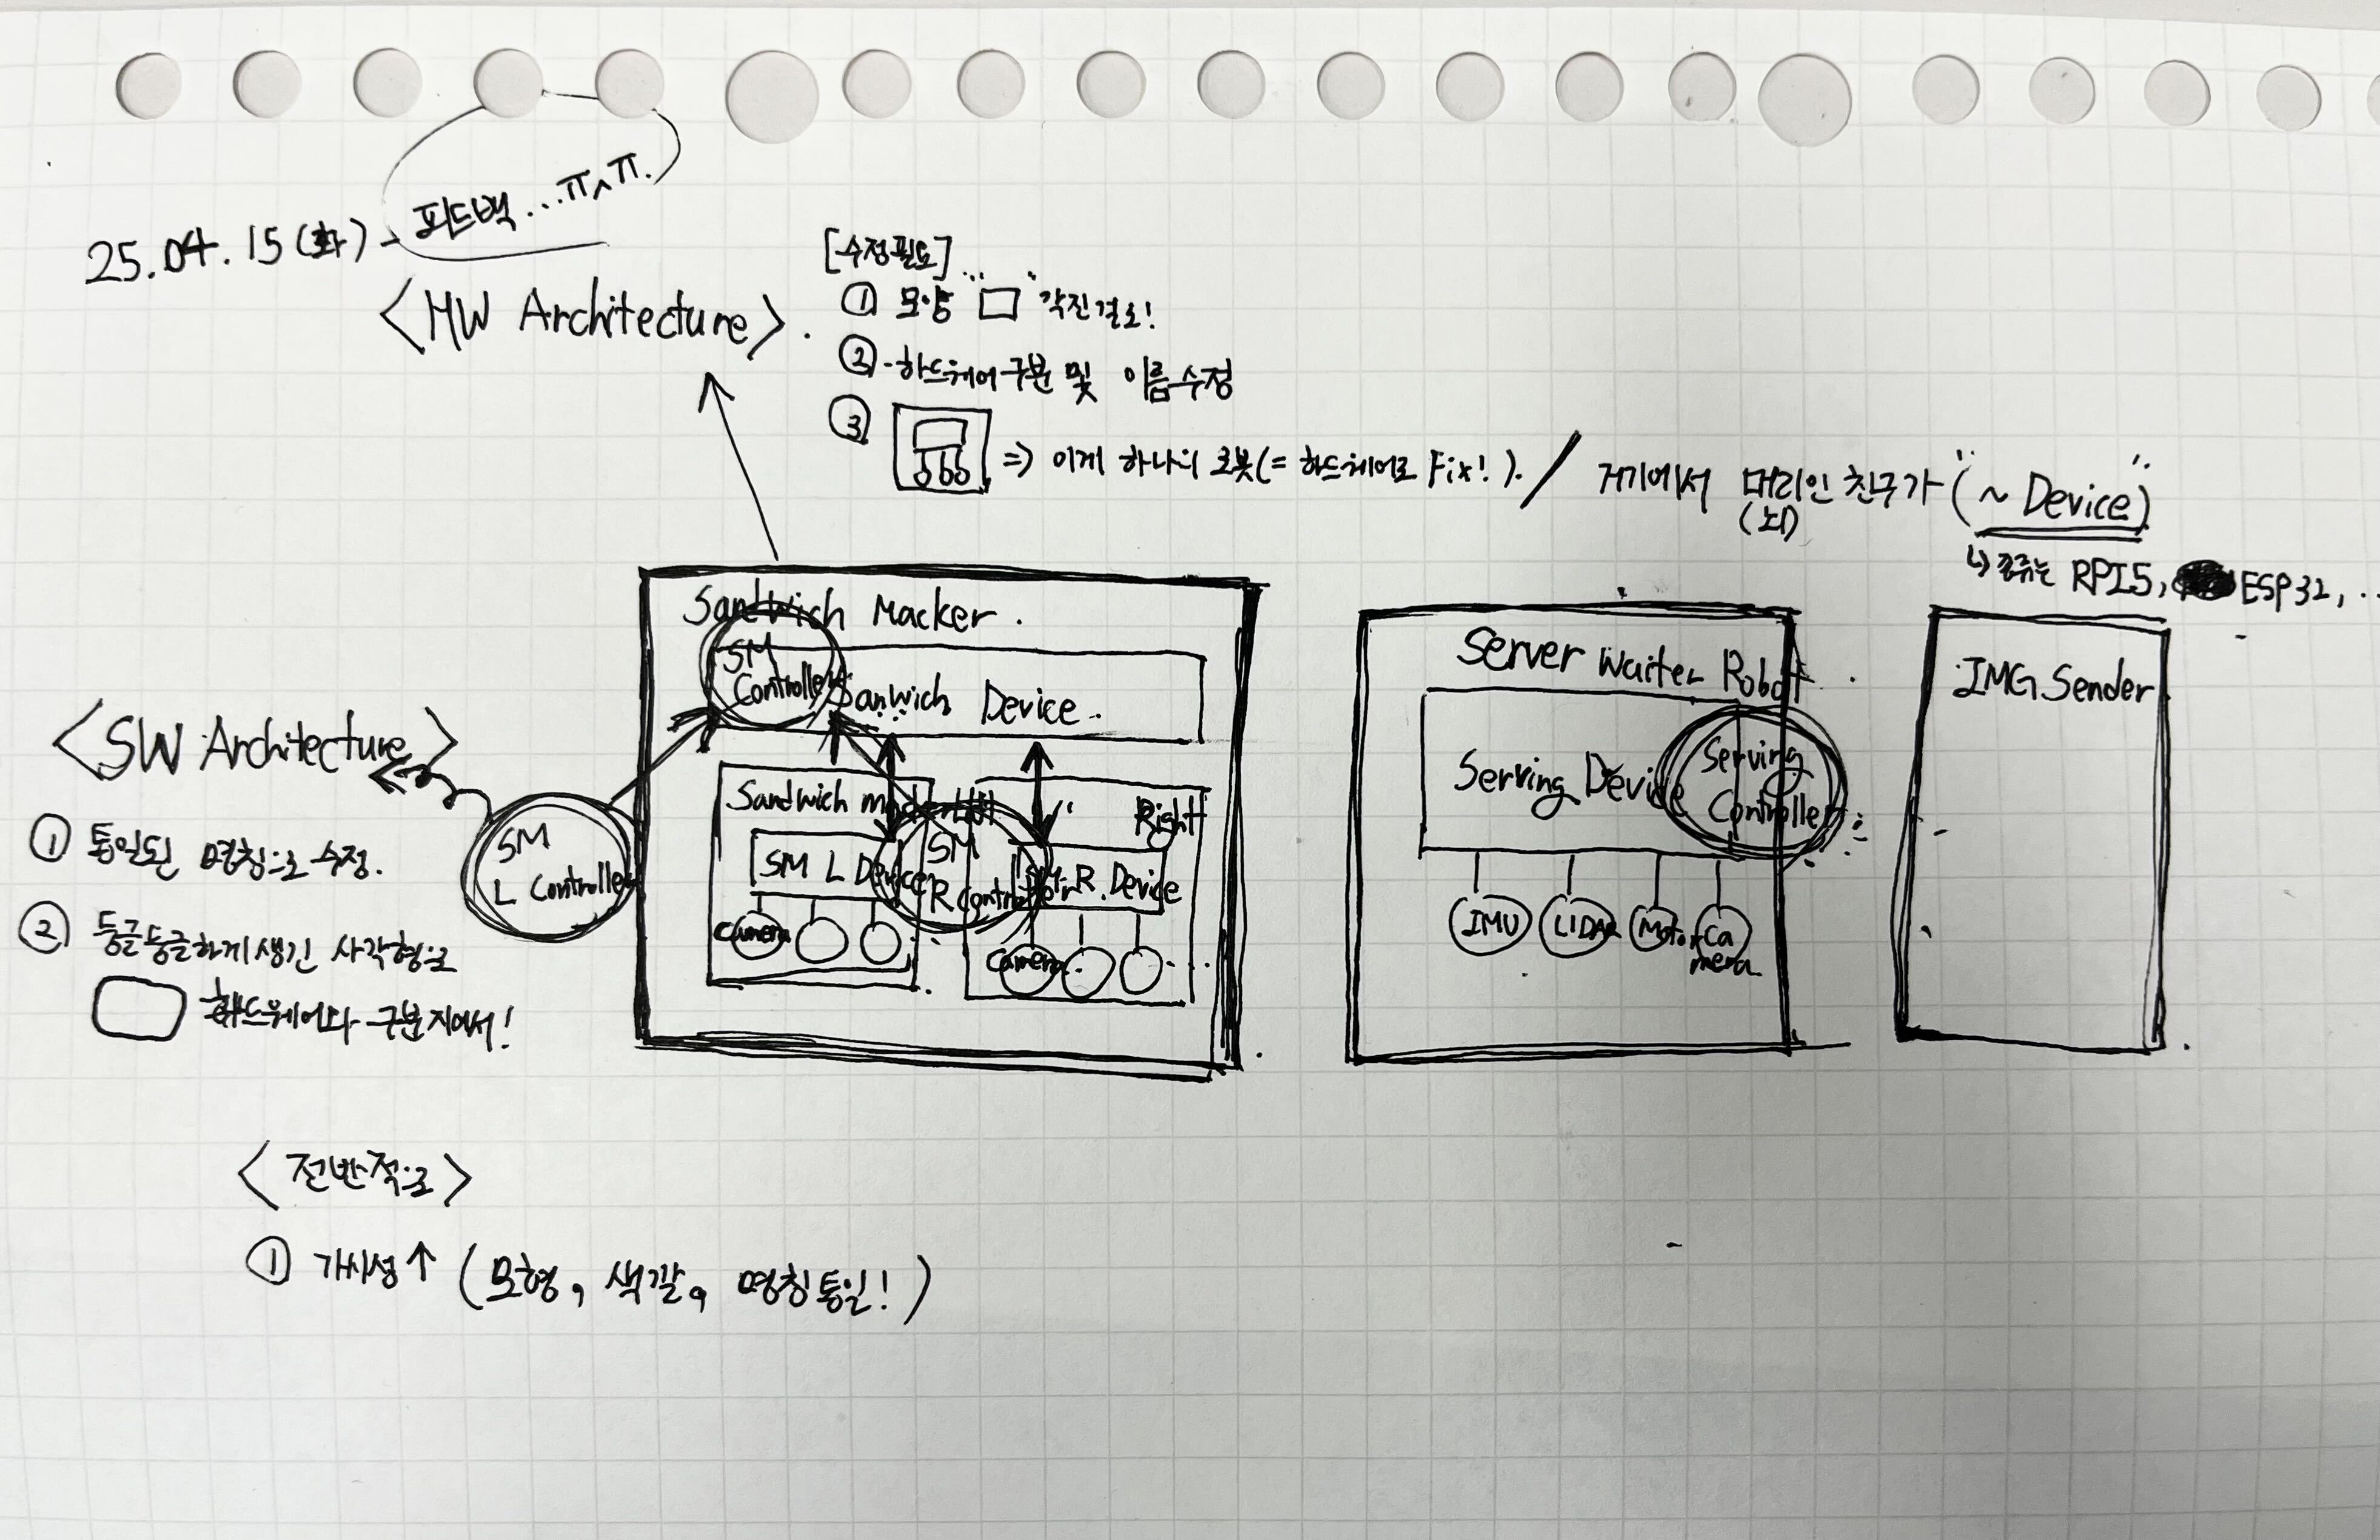 25.04.15(화)
피드백...ㅠㅅㅠ.
<HW Architecture>.
[수정필요]
① 모양 "□" 각진걸로!
② 하드웨어 구분 및 이름수정
③ => 이게 하나의 로봇(= 하드웨어로 Fix!). / 거기에서 머리인 친구가 "(~ Device)"
(뇌)
↳ 종류는 RPI5, ESP32, ..
Sandwich Macker.
SM
Controller
Sanwich Device.
Sandwich
Right
SM L Device
SM
R Controller
R. Device
Camera
Camera
Server Waiter Robot.
Serving Device
Serving
Controller
IMU
LIDAR
Motor
Ca
mera
IMG Sender
<SW Architecture>
① 통일된 명칭으로 수정.
② 둥글둥글하게 생긴 사각형으로
하드웨어와 구분지어서!
SM
L Controller
<전반적으로>
① 가시성↑ (모형, 색깔, 명칭통일!)